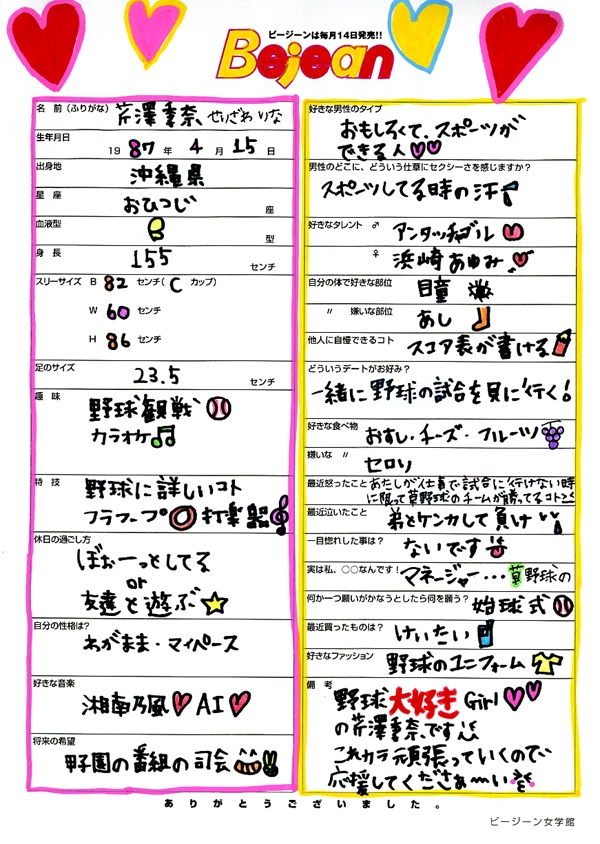 ビージーンは毎月14日発売!!
Bejean
名 前(ふりがな) 芹澤季奈 せりざわ りな
生年月日
1987年 4月 15日
出身地
沖縄県
星 座
おひつじ 座
血液型
B 型
身 長
155 センチ
スリーサイズ B 82 センチ( C カップ)
W 60 センチ
H 86 センチ
足のサイズ
23.5 センチ
趣 味
野球観戦
カラオケ
特 技
野球に詳しいコト
フラフープ 打楽器
休日の過ごし方
ぼぉーっとしてる
or
友達と遊ぶ
自分の性格は?
わがまま・マイペース
好きな音楽
湘南乃風 AI
将来の希望
甲子園の番組の司会
好きな男性のタイプ
おもしろくて、スポーツが
できる人
男性のどこに、どういう仕草にセクシーさを感じますか?
スポーツしてる時の汗
好きなタレント ♂ アンタッチャブル
♀ 浜崎あゆみ
自分の体で好きな部位 目 瞳
〃 嫌いな部位 あし
他人に自慢できるコト スコア表が書ける
どういうデートがお好み?
一緒に野球の試合を見に行く!
好きな食べ物
おすし・チーズ・フルーツ
嫌いな 〃
セロリ
最近怒ったこと あたしが仕事で試合に行けない時
に限って草野球のチームが勝ってるコト
最近泣いたこと 弟とケンカして負け
一目惚れした事は? ないです
実は私、○○なんです! マネージャー・・・草野球の
何か一つ願いがかなうとしたら何を願う? 始球式
最近買ったものは? けいたい
好きなファッション
野球のユニフォーム
備 考
野球大好きGirl
の芹澤季奈です
これカラ頑張っていくので
応援してくださぁーい
ありがとうございました。
ビージーン女学館